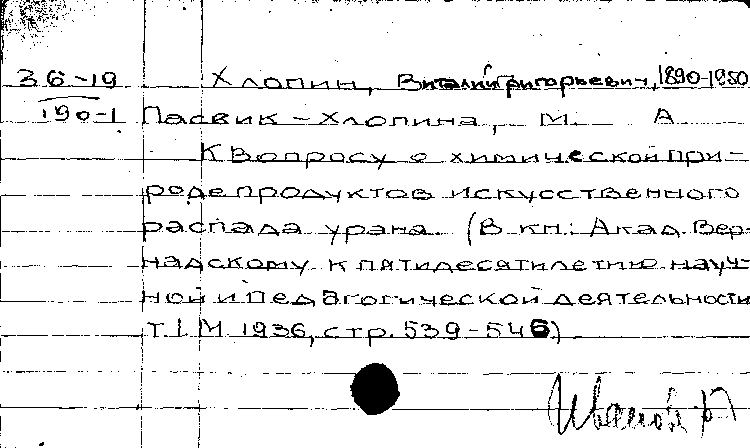 36-19 Хлопин, Виталий Григорьевич, 1890-1950
190-1 Пасвик-Хлопина, М. А
К вопросу о химической при-
роде продуктов искусственного
распада урана. (В кн: Акад. Вер-
надскому к пятидесятилетию науч-
ной и педагогической деятельности
Т. I. М 1936, стр. 539-546)